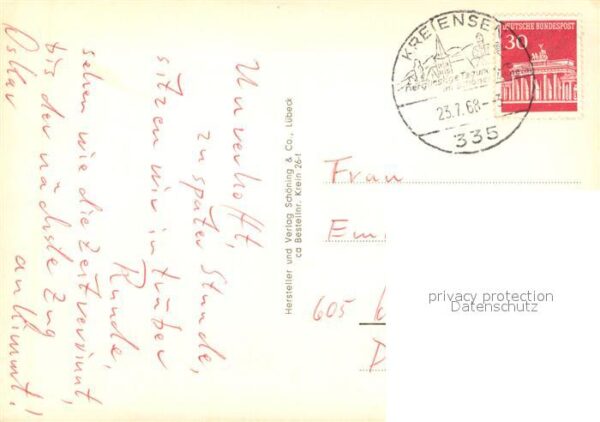 Unverhofft,
zu später Stunde,
sitzen wir in trüber
Runde,
sehen wie die Zeit verrinnt,
bis der nächste Zug
ankimmt!
Oskar
Hersteller und Verlag Schöning & Co., Lübeck
ca Bestellnr. Krein 26-f
KREIENSEN
23.7.68
335
DEUTSCHE BUNDESPOST
30
Frau
Em
605
D
privacy protection
Datenschutz